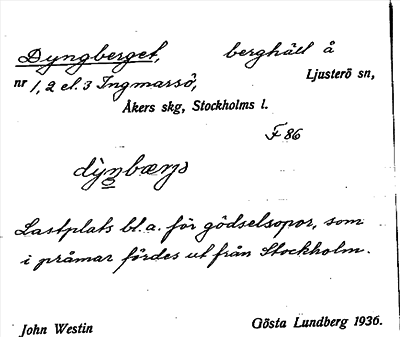 Dyngberget, berghäll å
nr 1, 2 el. 3 Ingmarsö, Ljusterö sn,
Åkers skg, Stockholms l.
F 86
Lastplats bl.a. för gödselsopor, som
i pråmar fördes ut från Stockholm.
John Westin Gösta Lundberg 1936.